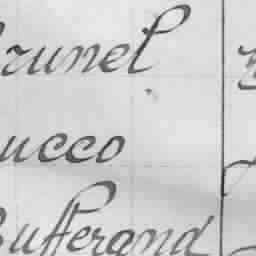 Brunel
ucco
Bufferand